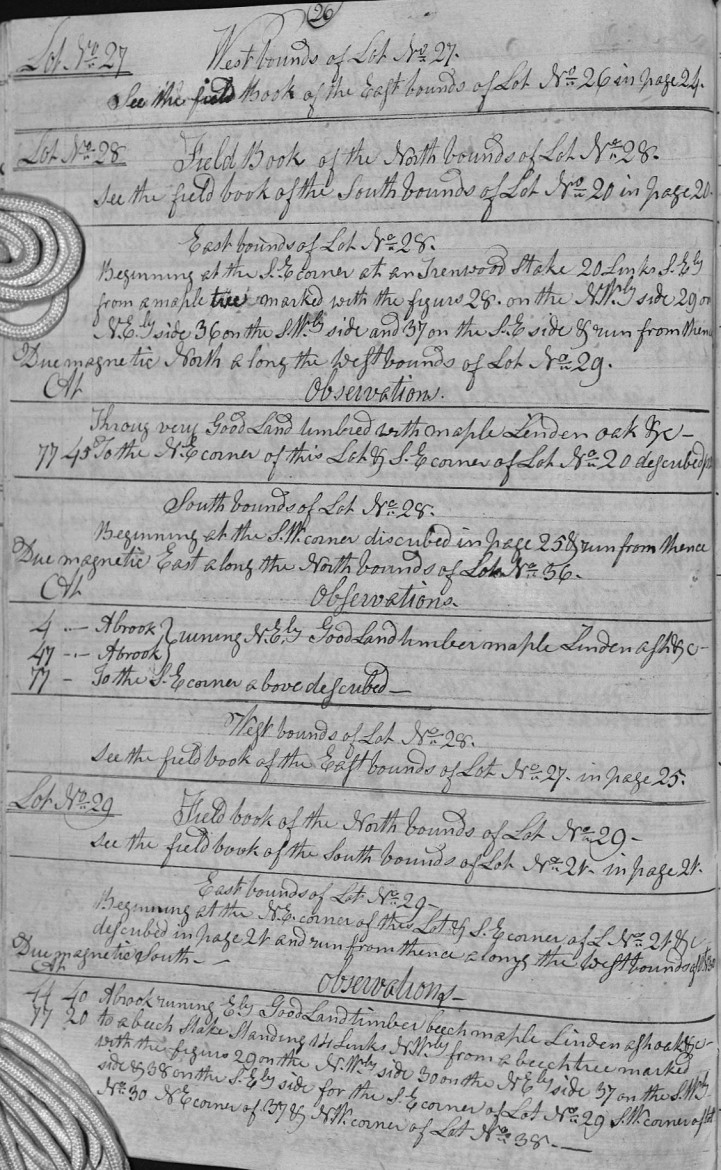 26
Lot No. 27 West bounds of Lot No. 27.
See the field Book of the East bounds of Lot No. 26 in page 24.
Lot No. 28 Field Book of the North bounds of Lot No. 28.
see the field book of the South bounds of Lot No. 20 in page 20.
East bounds of Lot No. 28.
Beginning at the S.E corner at an Irenwood Stake 20 Links S.Ely
from a maple tree marked with the figurs 28. on the N.Wly side 29 on
N.E.ly side 36 on the S.Wly side and 37 on the S.E side & run from thence
Due magnetic North along the West bounds of Lot No. 29.
Ch Observations.
Throug very Good Land timbred with maple Linden oak &c –
77 45 To the N.E corner of this Lot & S.E corner of Lot No. 20 described
South bounds of Lot No. 28.
Beginning at the S.W. corner discribed in page 25 & run from thence
Due magnetic East along the North bounds of Lot No. 36.
Ch Observations.
4 – A brook } runing N.E.ly Good Land timber maple Linden ash &c –
47 – A brook }
77 – To the S.E corner above described –
West bounds of Lot No. 28.
see the field book of the East bounds of Lot No. 27. in page 25.
Lot No. 29 Field book of the North bounds of Lot No. 29 –
see the field book of the South bounds of Lot No. 21. in page 21.
East bounds of Lot No. 29 –
Beginning at the N.E. corner of this Lot & S.E corner of L No. 21 &c
described in page 21 and run from thence along the West bounds of
Due magnetic South –
Ch Observations –
44 40 A brook runing Ely Good Land timber beech maple Linden ash oak &c –
77 20 to a beech Stake Standing 14 Links N.Wly from a beech tree marked
with the figurs 29 on the N.Wly side 30 on the N.Ely side 37 on the S.Wly
side & 38 on the S.Ely side for the S.E corner of Lot No. 29 S.W. corner of Lot
No. 30 N.E corner of 37 & N.W. corner of Lot No. 38. –